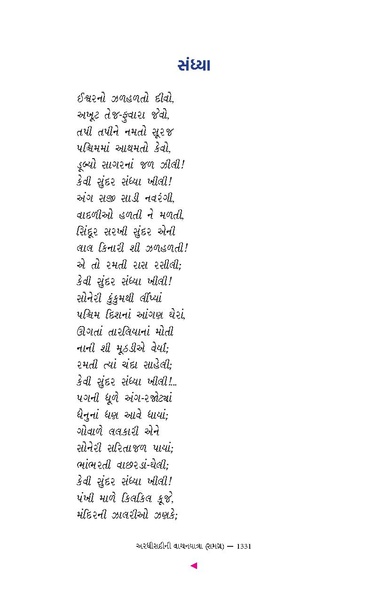 સંધ્યા
ઈશ્વરનો ઝળહળતો દીવો,
અખૂટ તેજ-ફુવારા જેવો,
તપી તપીને નમતો સૂરજ
પશ્ચિમમાં આથમતો કેવો,
ડૂબ્યો સાગરનાં જળ ઝીલી!
કેવી સુંદર સંધ્યા ખીલી!
અંગ સજી સાડી નવરંગી,
વાદળીઓ હળતી ને મળતી,
સિંદૂર સરખી સુંદર એની
લાલ કિનારી શી ઝળહળતી!
એ તો રમતી રાસ રસીલી;
કેવી સુંદર સંધ્યા ખીલી!
સોનેરી કુંકુમથી લીંપ્યાં
પશ્ચિમ દિશનાં આંગણ ઘેરાં,
ઊગતાં તારલિયાનાં મોતી
નાની શી મૂઠડીએ વેર્યાં;
રમતી ત્યાં ચંદા સાહેલી;
કેવી સુંદર સંધ્યા ખીલી!...
પગની ધૂળે અંગ-રજોટ્યાં
ધૈનુનાં ધણ આવે ધાયાં;
ગોવાળે લલકારી એને
સોનેરી સરિતાજળ પાયાં;
ભાંભરતી વાછરડાં-ઘેલી;
કેવી સુંદર સંધ્યા ખીલી!
પંખી માળે કિલકિલ કૂજે,
મંદિરની ઝાલરીઓ ઝણકે;
અરધી સદીની વાચનયાત્રા (સમગ્ર) — 1331